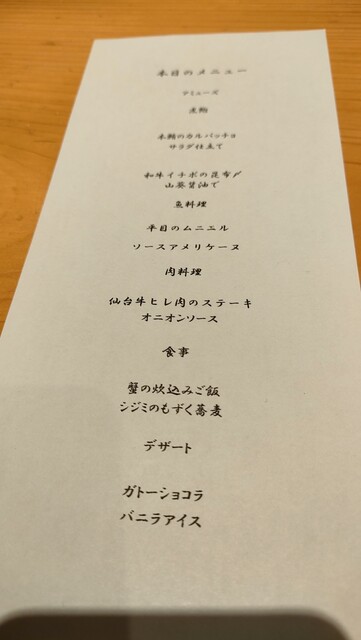 本日のメニュー
アミューズ
本鮪のカルパッチョ
サラダ仕立て
和牛イチボの昆布〆
山葵醤油で
魚料理
平目のムニエル
ソースアメリケーヌ
肉料理
仙台牛ヒレ肉のステーキ
オニオンソース
食事
蟹の炊込みご飯
シジミのもずく蕎麦
デザート
ガトーショコラ
バニラアイス